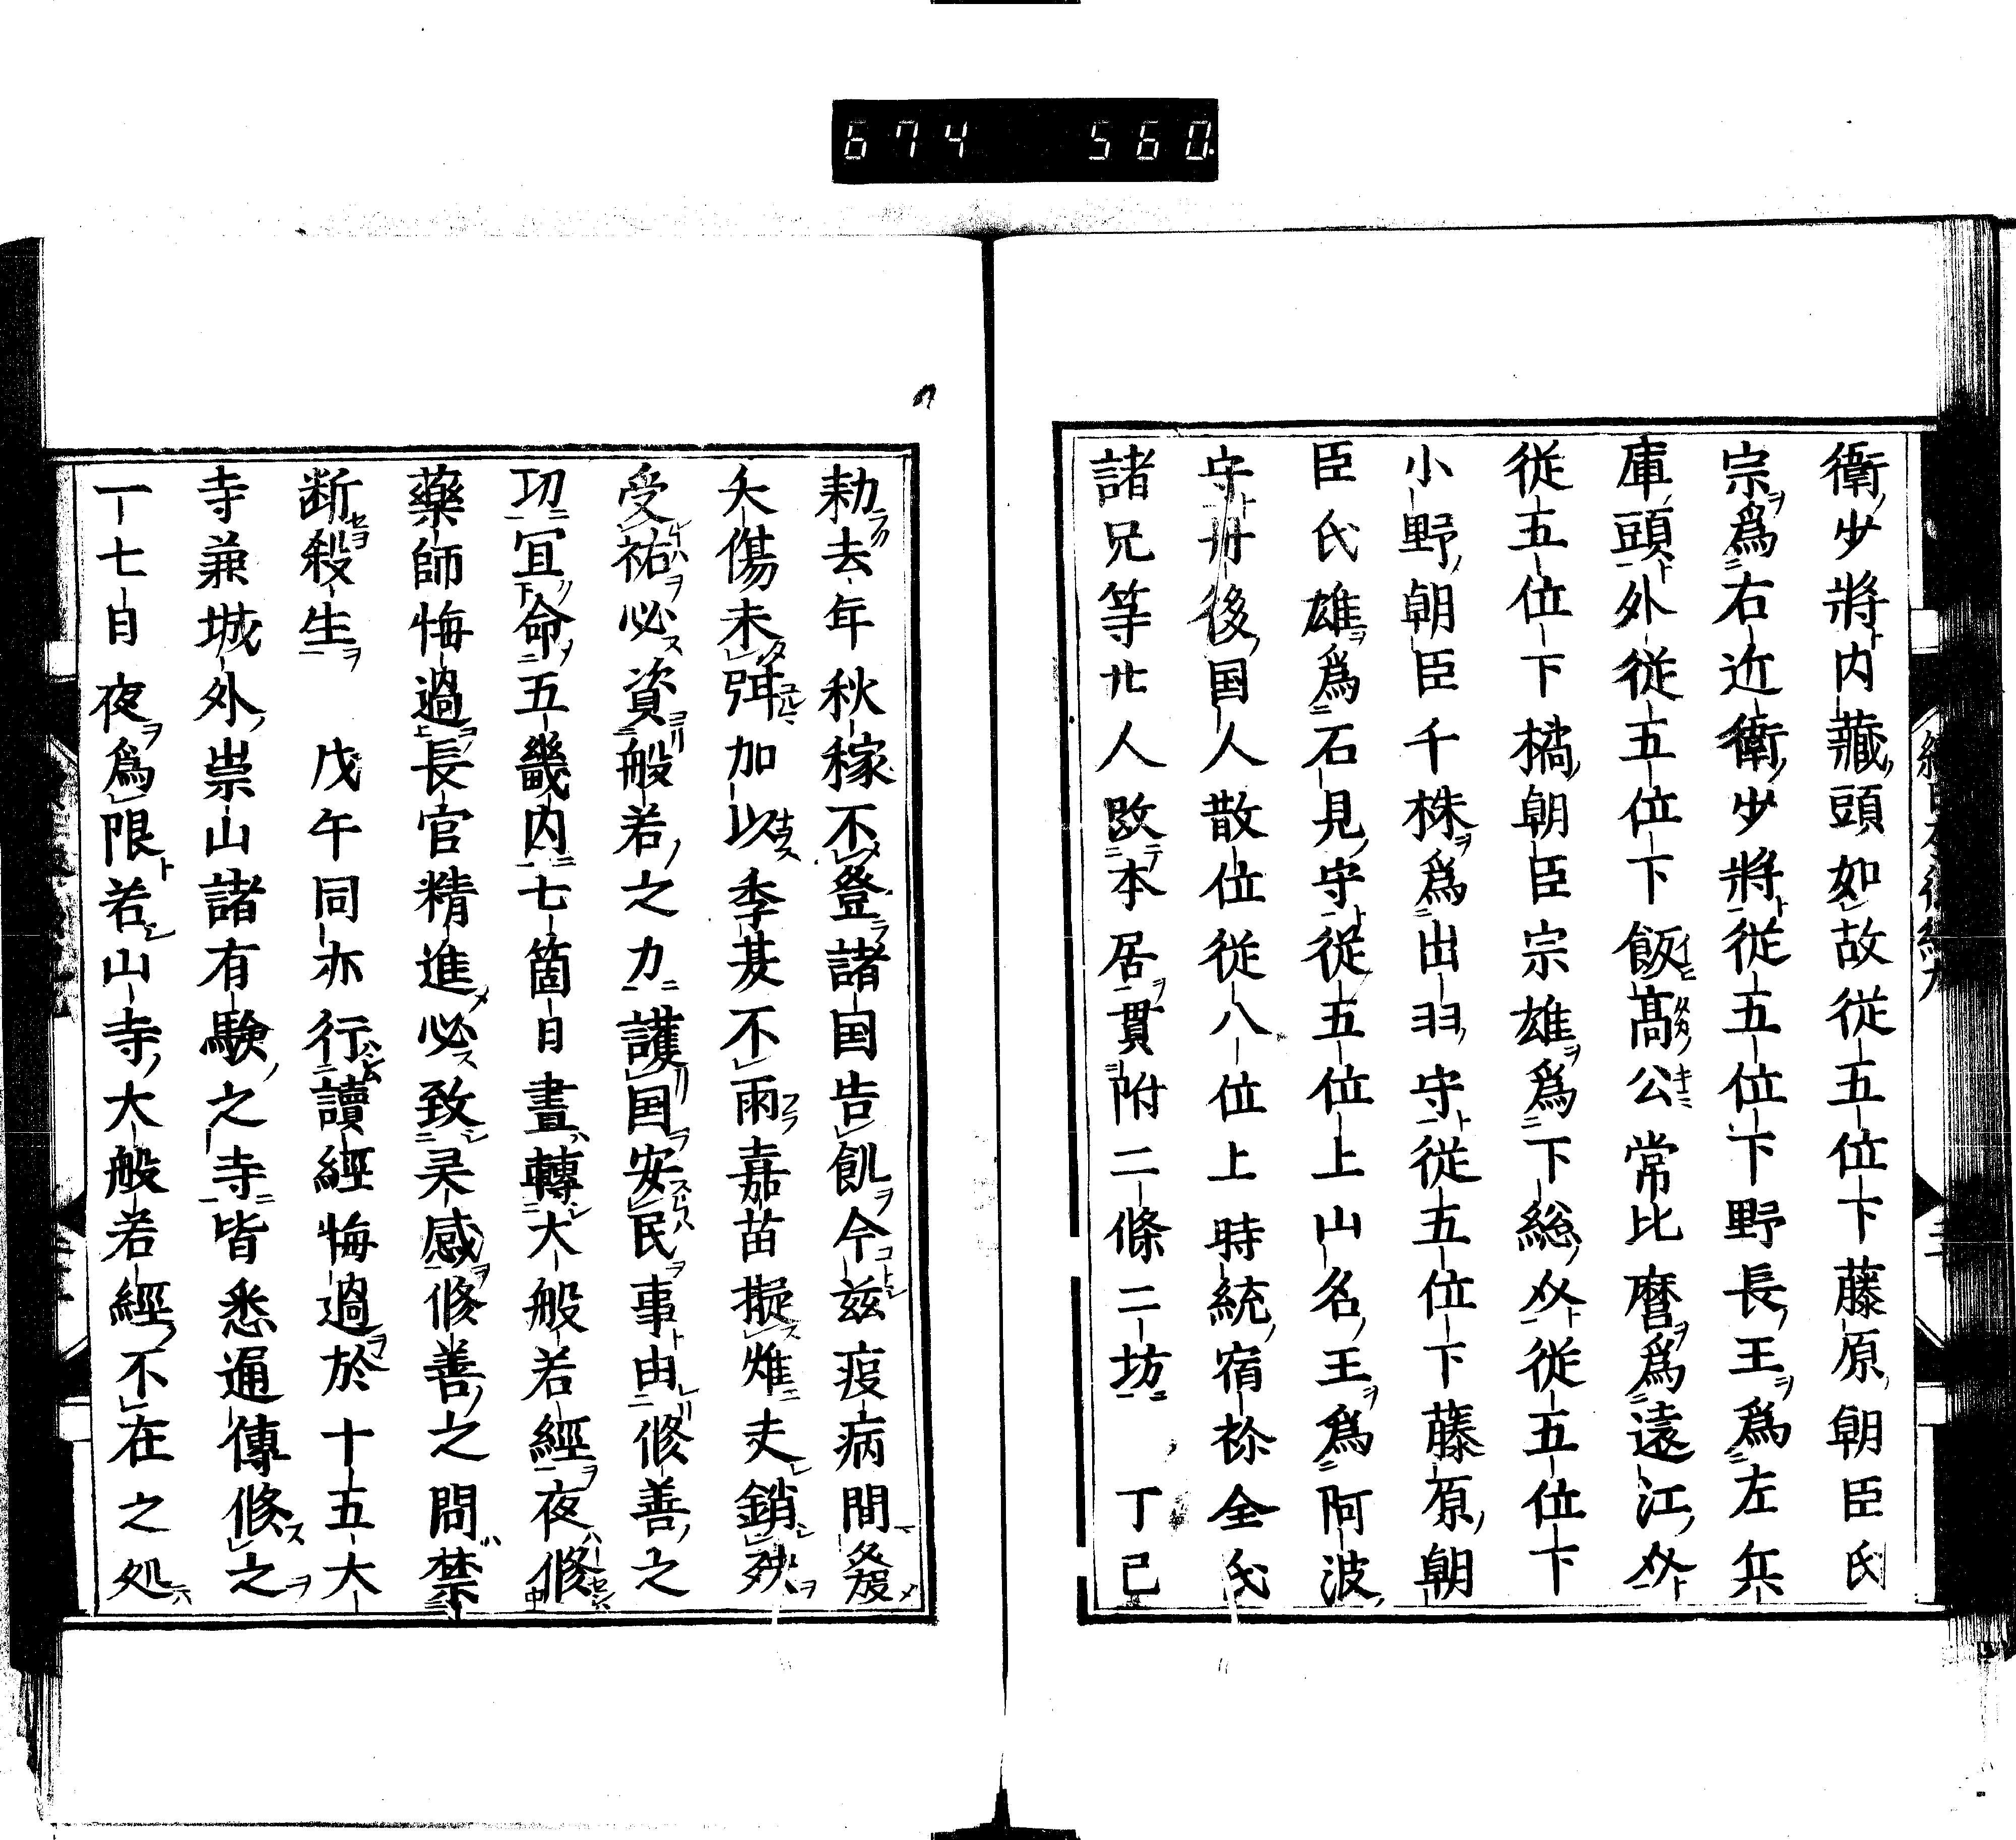 674 560
衛少將内藏頭如故從五位下藤原朝臣氏
宗爲右近衛少將從五位下野長王爲左兵
庫頭外從五位下飯高公常比麿爲遠江介
從五位下橘朝臣宗雄爲下総介從五位下
小野朝臣千株爲出羽守從五位下藤原朝
臣氏雄爲石見守從五位上山名王爲阿波
守丹後国人散位從八位上時統宿祢全氏
諸兄等廿人改本居貫附二條二坊 丁巳
勅去年秋稼不登諸国告飢今兹疫病間發
夭傷未弭加以季夏不雨嘉苗擬燋夫銷殃
受祐必資般若之力護国安民事由修善之
功冝命五畿内七箇日晝轉大般若經夜修
藥師悔過長官精進必致灵感修善之間禁
断殺生 戊午同亦行讀經悔過於十五大
寺兼城外崇山諸有驗之寺皆悉遍傳修之
一七日夜爲限若山寺大般若經不在之処